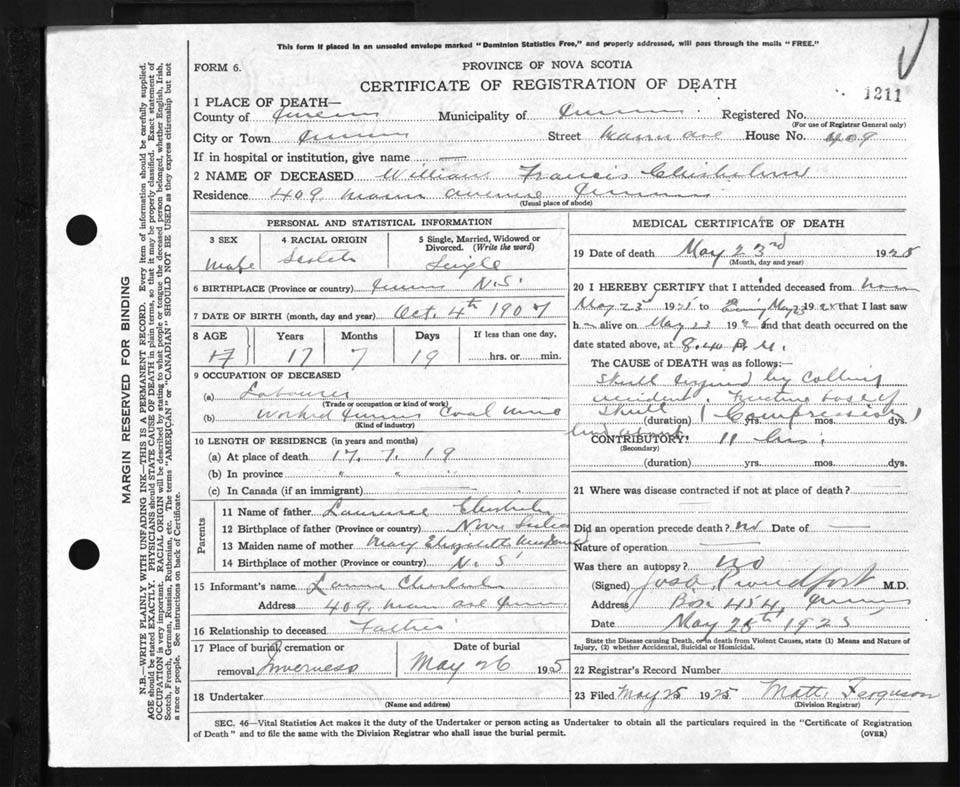 This form if placed in an unsealed envelope marked "Dominion Statistics Free," and properly addressed, will pass through the mails "FREE."
FORM 6.
PROVINCE OF NOVA SCOTIA
CERTIFICATE OF REGISTRATION OF DEATH
1211
1 PLACE OF DEATH—
County of Municipality of Registered No.
(For use of Registrar General only)
City or Town Street Main Ave House No. 409
If in hospital or institution, give name —
2 NAME OF DECEASED William Francis Chisholm
Residence 409 Main avenue
(Usual place of abode)
PERSONAL AND STATISTICAL INFORMATION
3 SEX
Male
4 RACIAL ORIGIN
Scotch
5 Single, Married, Widowed or Divorced. (Write the word)
Single
6 BIRTHPLACE (Province or country) N.S.
7 DATE OF BIRTH (month, day and year) Oct. 4th 1907
8 AGE Years Months Days If less than one day,
17 17 7 19 hrs. or min.
9 OCCUPATION OF DECEASED
(a) Labourer
(Trade or occupation or kind of work)
(b) Worked Coal Mine
(Kind of industry)
10 LENGTH OF RESIDENCE (in years and months)
(a) At place of death 17. 7. 19
(b) In province " " "
(c) In Canada (if an immigrant)
Parents
11 Name of father Laurence Chisholm
12 Birthplace of father (Province or country) Nova Scotia
13 Maiden name of mother Mary Elizabeth
14 Birthplace of mother (Province or country) N.S.
15 Informant's name Chisholm
Address 409. Main Ave
16 Relationship to deceased Father
17 Place of burial, cremation or removal Inverness
Date of burial
May 26 1925
18 Undertaker
(Name and address)
MEDICAL CERTIFICATE OF DEATH
19 Date of death May 23rd 1925
(Month, day and year)
20 I HEREBY CERTIFY that I attended deceased from
May 23rd 192 to May 23 192 that I last saw
h alive on May 23 192 and that death occurred on the
date stated above, at 8.40 P.M.
The CAUSE of DEATH was as follows:—
Skull by
accident. base of
Skull (Compression)
(duration) yrs. mos. dys.
CONTRIBUTORY. 11 hrs.
(Secondary)
(duration) yrs. mos. dys.
21 Where was disease contracted if not at place of death?
Did an operation precede death? no Date of
Nature of operation
Was there an autopsy? no
(Signed) M.D.
Address Box 454,
Date May 25th 1925
State the Disease causing Death, or in death from Violent Causes, state (1) Means and Nature of Injury, (2) whether Accidental, Suicidal or Homicidal.
22 Registrar's Record Number
23 Filed May 25 1925 Matt. Ferguson
(Division Registrar)
SEC. 46—Vital Statistics Act makes it the duty of the Undertaker or person acting as Undertaker to obtain all the particulars required in the "Certificate of Registration
of Death" and to file the same with the Division Registrar who shall issue the burial permit.
(OVER)
MARGIN RESERVED FOR BINDING
N.B.—WRITE PLAINLY WITH UNFADING INK—THIS IS A PERMANENT RECORD. Every item of information should be carefully supplied.
AGE should be stated EXACTLY. PHYSICIANS should STATE CAUSE OF DEATH in plain terms, so that it may be properly classified. Exact statement of
OCCUPATION is very important. RACIAL ORIGIN will be described by stating to what people or tongue the deceased person belonged, whether English, Irish,
Scotch, French, German, Russian, Ruthenian, etc. The terms "AMERICAN" or "CANADIAN" SHOULD NOT BE USED as they express citizenship but not
a race or people. See instructions on back of Certificate.